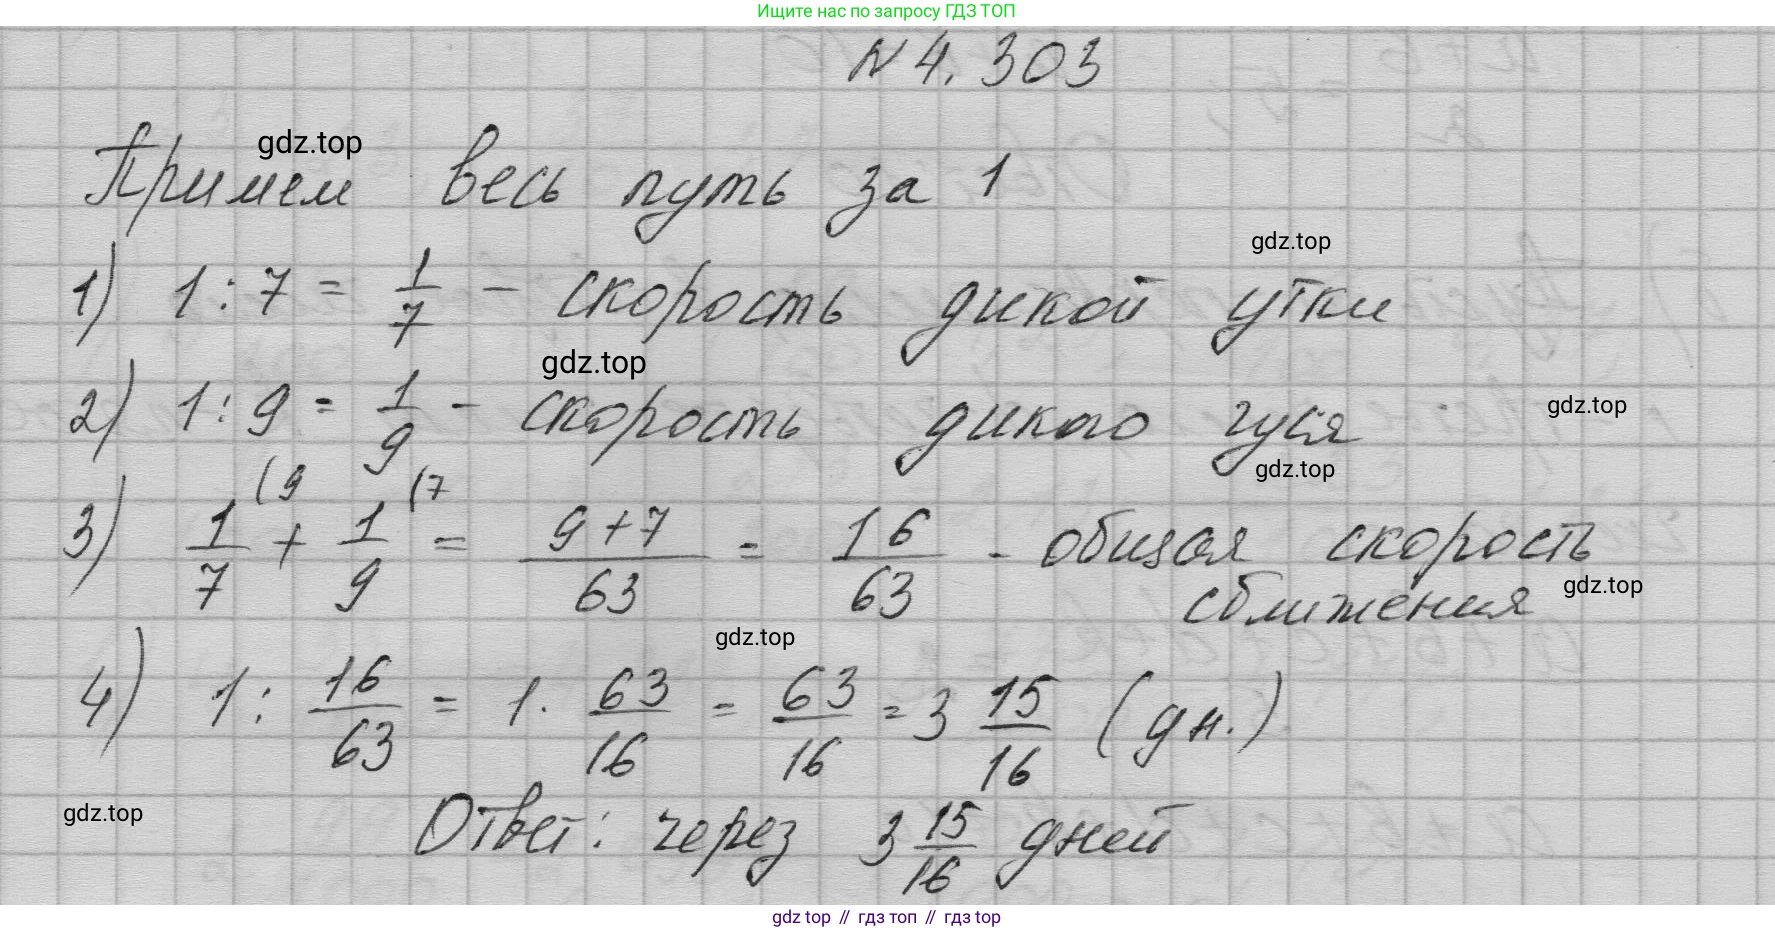 Ищите нас по запросу ГДЗ ТОП
№ 4.303
gdz.top
Примем весь путь за 1
gdz.top
1) 1 : 7 = 1/7 - скорость дикой утки
gdz.top
2) 1 : 9 = 1/9 - скорость дикого гуся
gdz.top
gdz.top
3) 1/7 (9 + 1/9 (7 = 9+7/63 = 16/63 - общая скорость
сближения
gdz.top
gdz.top
4) 1 : 16/63 = 1 · 63/16 = 63/16 = 3 15/16 (дн.)
gdz.top
Ответ: через 3 15/16 дней
gdz top // гдз топ // гдз top